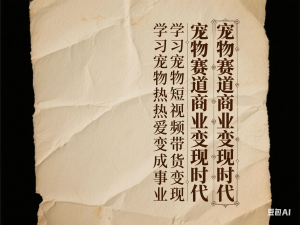 宠物赛道商业变现时代
宠物赛道商业变现时代
学习宠物短视频带货变现
学习宠物热热爱变成事业
豆包AI